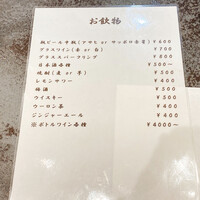 お飲物
瓶ビール中瓶(アサヒ or サッポロ赤星) ¥600
グラスワイン(赤 or 白) ¥700
グラススパークリング ¥800
日本酒各種 ¥500~
焼酎(麦 or 芋) ¥500
レモンサワー ¥400
梅酒 ¥500
ウイスキー ¥500
ウーロン茶 ¥400
ジンジャーエール ¥400
※ボトルワイン各種 ¥4000~